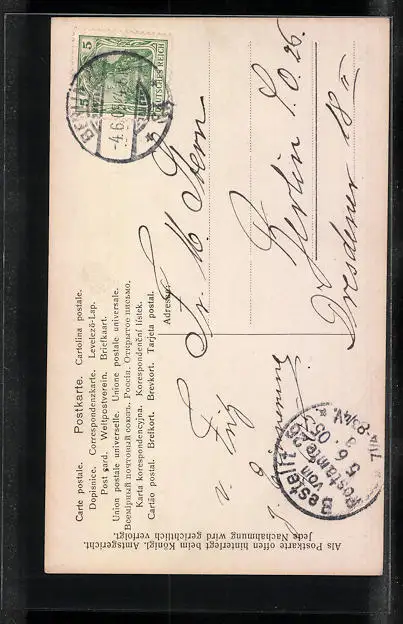 Carte postale. Postkarte. Cartolina postale.
Dopisnice. Correspondenzkarte. Levelező-Lap.
Post card. Weltpostverein. Briefkaart.
Union postale universelle. Unione postale universale.
Всемірный почтовый союзъ. Россія. Открытое письмо.
Karta korespondencyjna. Korespondenční lístek.
Cartão postal. Brefkort. Brevkort. Tarjeta postal.
Adresse:
Fr. M. Stern
Berlin S.O. 26.
Dresdener
v. Fritz
5
5
DEUTSCHES REICH
BERLIN
4.6.05
Bestellt
vom
Postamte 26
5. 6. 05
Als Postkarte offen hinterlegt beim Königl. Amtsgericht.
Jede Nachahmung wird gerichtlich verfolgt.